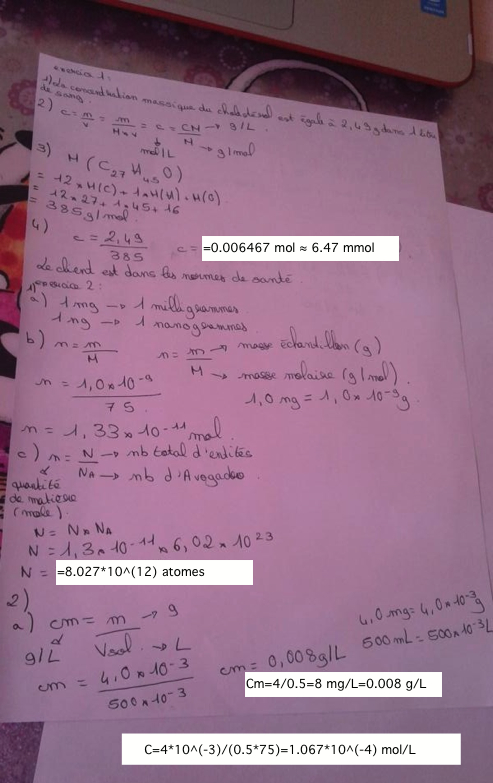 exercice 1:
1) La concentration massique du cholestérol est égale à 2,49g dans 1 litre
de sang.
2) c = m/v = m/M×v = c = CM/M → g/L
mol/L → g/mol
3) M(C27H45O)
= 12×M(C)+1×M(H)×M(O)
= 12×27+1×45+16
= 385g/mol.
4)
c = 2,49/385 c = =0.006467 mol ≈ 6.47 mmol
Le client est dans les normes de santé.
exercice 2:
a) 1 mg → 1 milligrammes
1 ng → 1 nanogrammes
b) n = m/M n = m/M → masse échantillon (g)
→ masse molaire (g/mol).
n = 1,0×10⁻⁹/75 1,0 ng = 1,0×10⁻⁹g
n = 1,33×10⁻¹¹ mol.
c) n = N/NA → nb total d'entités
→ nb d'Avogadro
quantité
de matière
(mole).
N = N×NA
N = 1,3×10⁻¹¹×6,02×10²³
N = =8.027*10^(12) atomes
2)
a) cm = m/Vsol → g
→ L
g/L
4,0mg=4,0×10⁻³g
500mL=500×10⁻³L
cm = 4,0×10⁻³/500×10⁻³ cm = 0,008g/L
Cm=4/0.5=8 mg/L=0.008 g/L
C=4*10^(-3)/(0.5*75)=1.067*10^(-4) mol/L